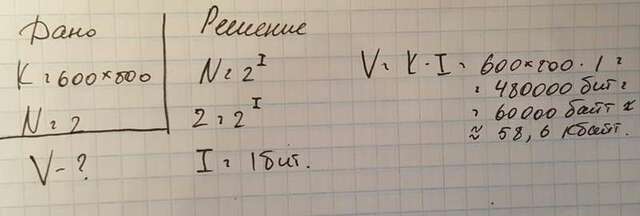 Дано
K = 600×800
N = 2
V - ?
Решение
N = 2^I
2 = 2^I
I = 1 бит.
V = K · I = 600×800 · 1 =
= 480000 бит =
= 60000 байт ≈
≈ 58,6 Кбайт.